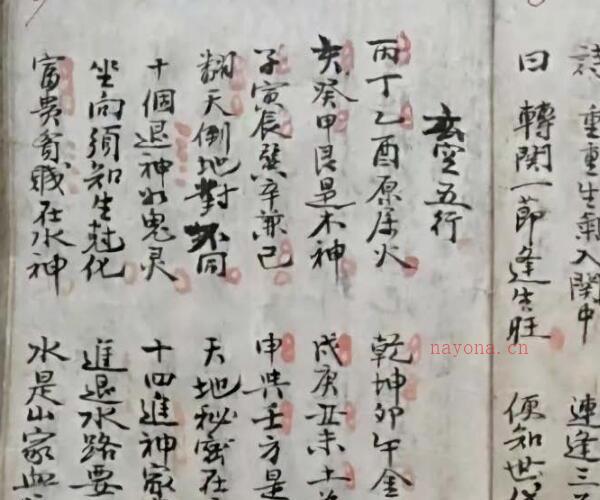 詩 重重生氣入関中 連逢三
曰 轉関一節逢生旺 便知世
玄空五行
丙丁乙酉原属火 乾坤卯午金
亥癸甲艮是木神 戌庚丑未土
子寅辰巽辛兼已 申與壬方是
翻天倒地對不同 天地秘密在
十個退神如鬼灵 十四進神家
坐向須知生尅化 進退水路要
富貴貧賤在水神 水是山家血
nayona.cn